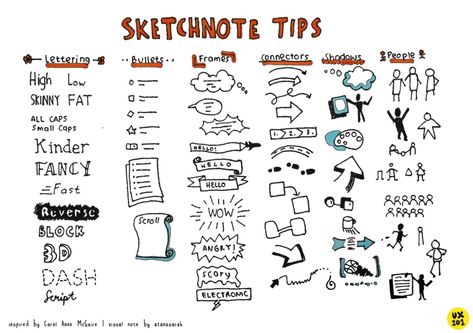 SKETCHNOTE TIPS
Lettering
Bullets
Frames
Connectors
Shadows
People
High Low
SKINNY FAT
ALL CAPS
Small Caps
Kinder
FANCY
Fast
Reverse
BLOCK
3D
DASH
Script
Scroll
HELLO!
HELLO
HELLO
WOW
ANGRY!
scary
ELECTRONIC
1. 2. 3.
inspired by Carol Anne McGuire | visual note by atanasarah
UX
101